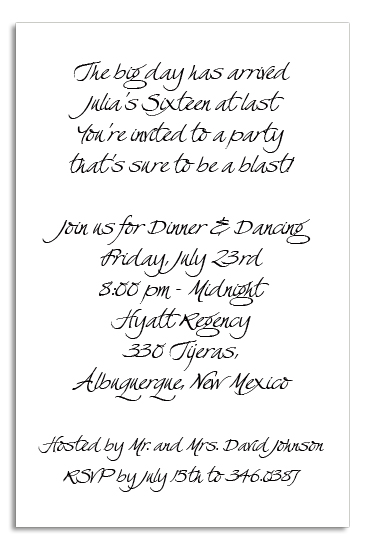 The big day has arrived
Julia's Sixteen at last
You're invited to a party
that's sure to be a blast!
Join us for Dinner & Dancing
Friday, July 23rd
8:00 pm - Midnight
Hyatt Regency
330 Tijeras,
Albuquerque, New Mexico
Hosted by Mr. and Mrs. David Johnson
RSVP by July 15th to 346.0387